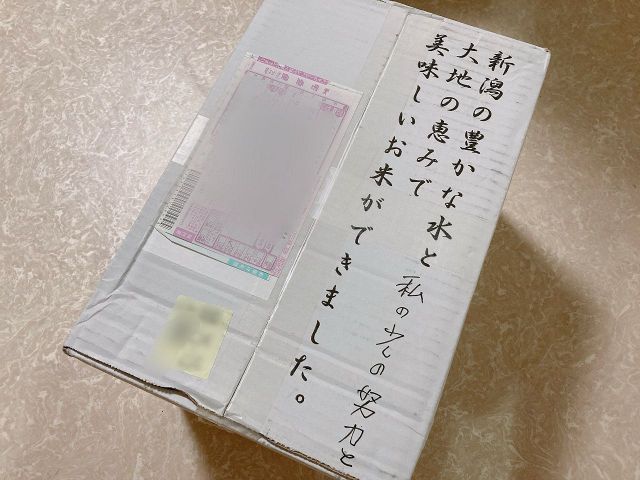 新潟の豊かな水と私の少しの努力と
大地の恵みで
美味しいお米ができました。